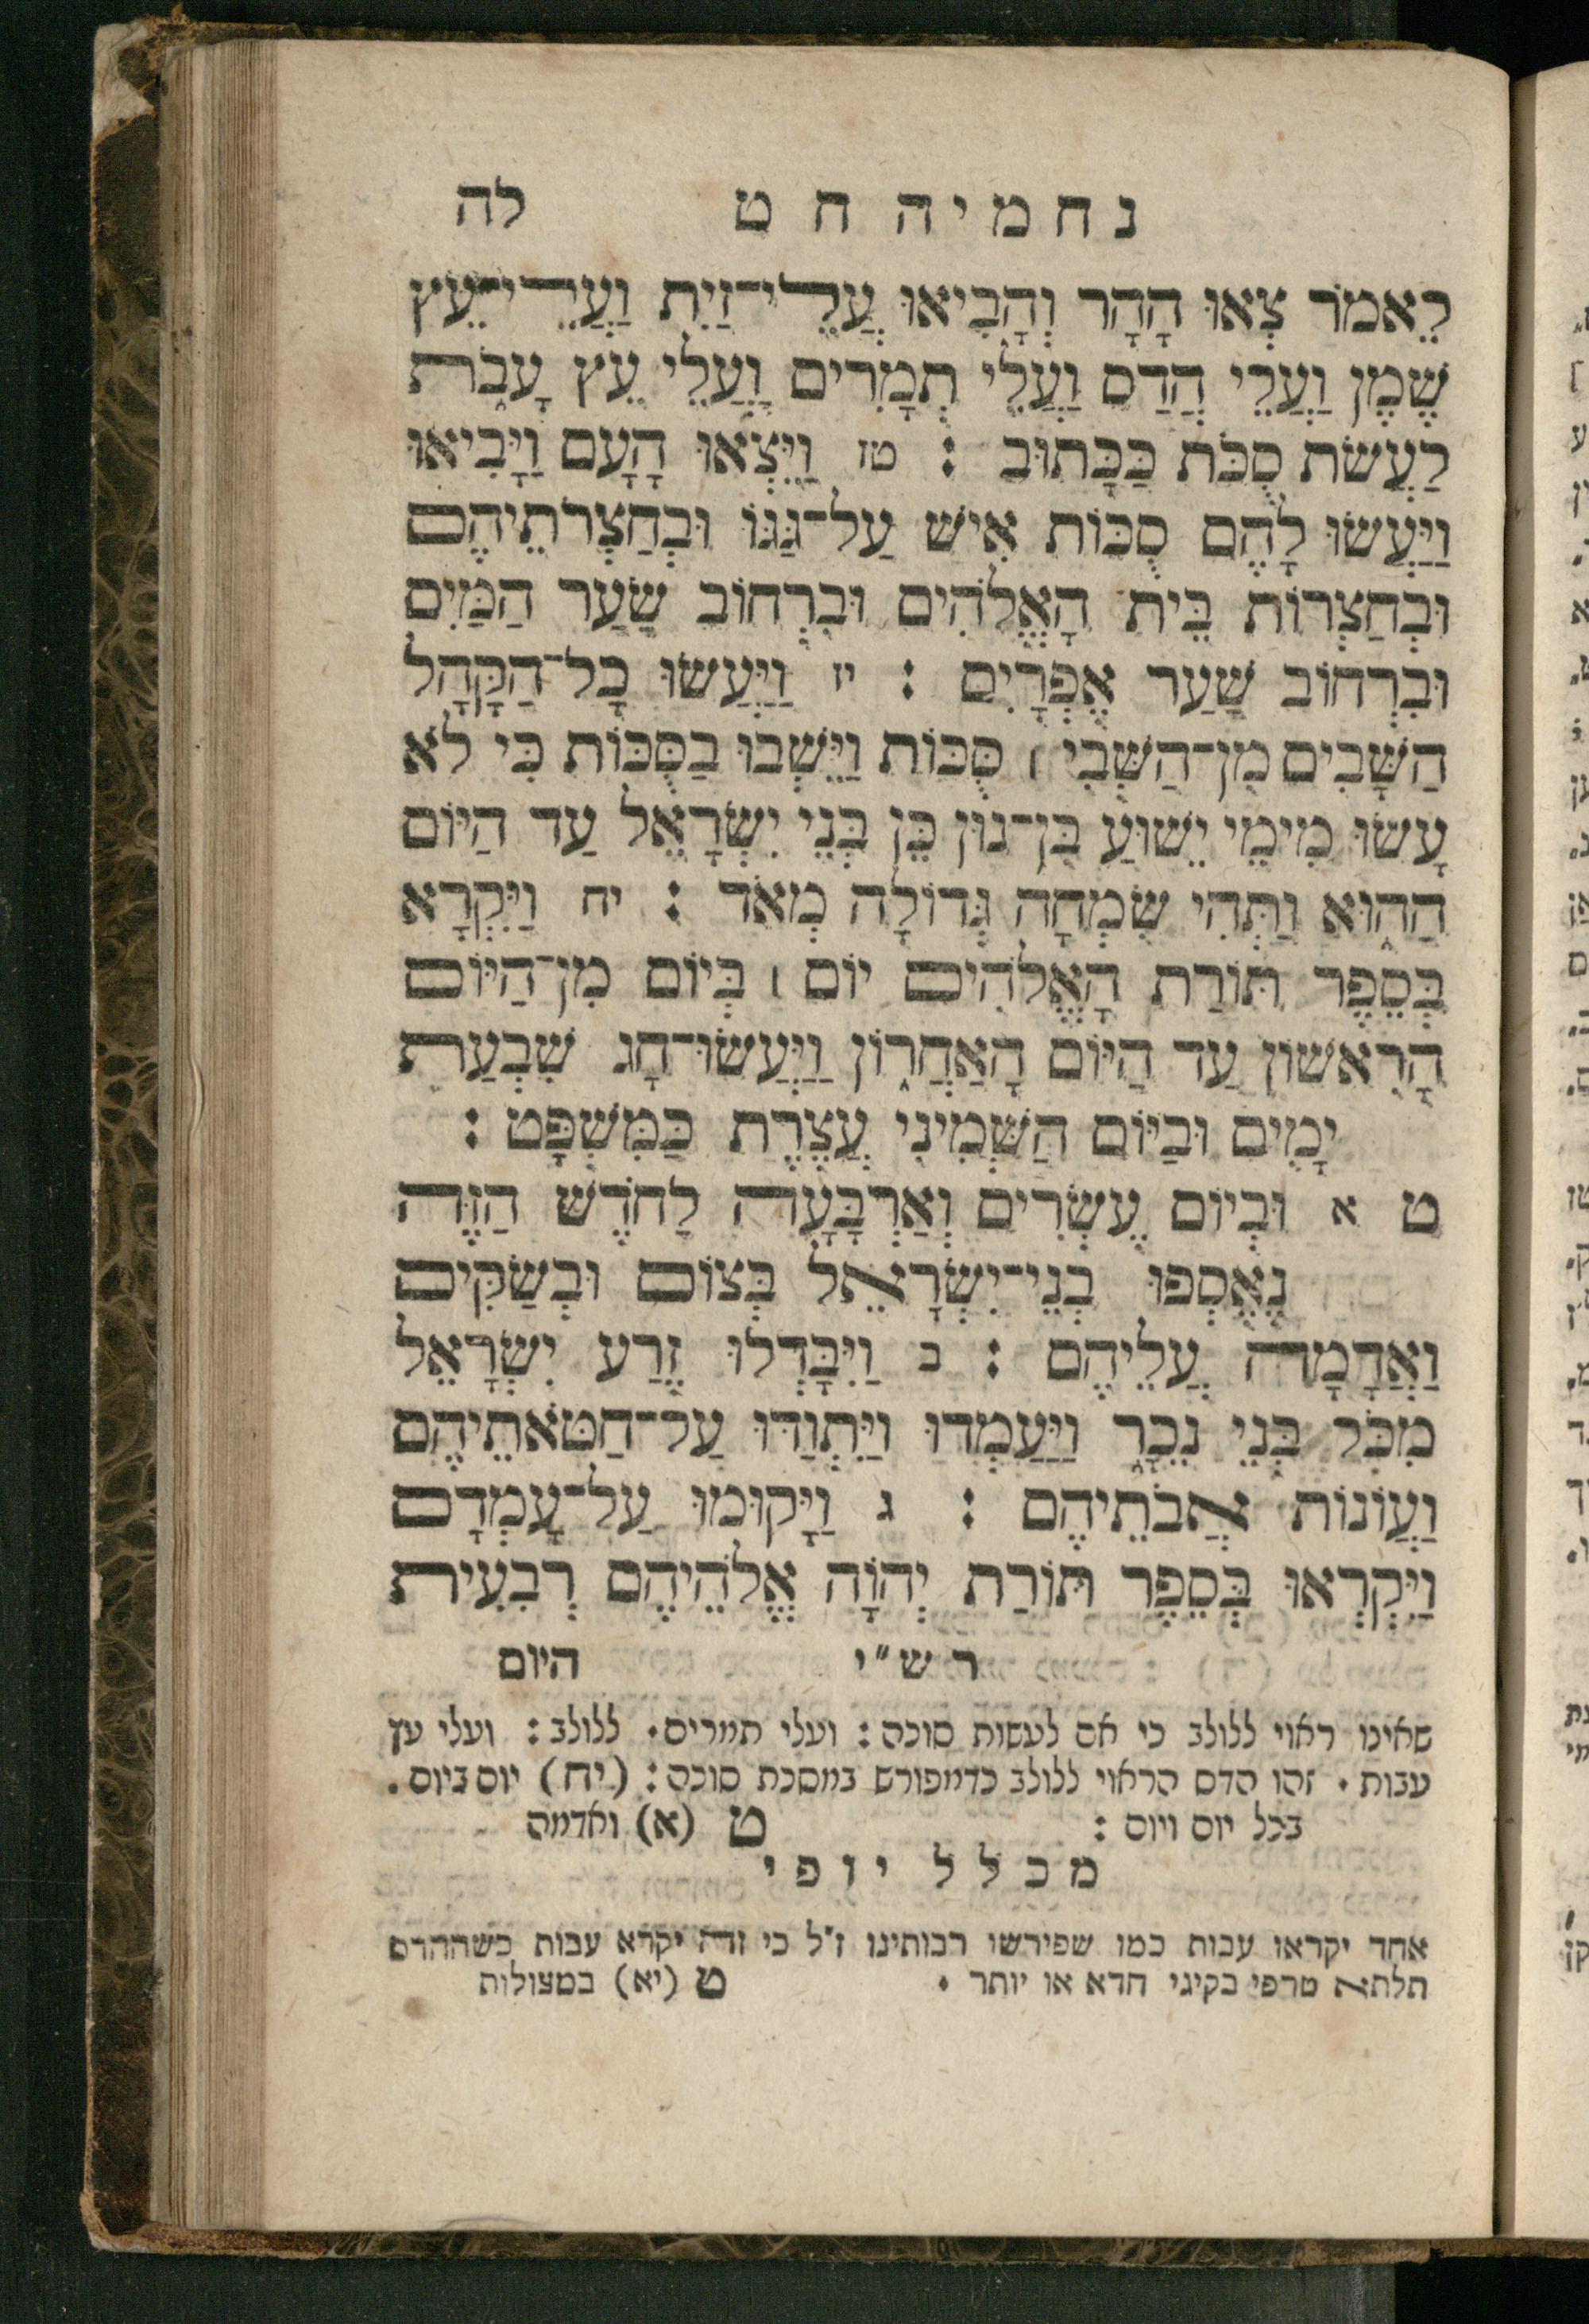 נחמיה ח ט לה
לֵאמֹר צְאוּ הָהָר וְהָבִיאוּ עֲלֵי־זַיִת וַעֲלֵי־עֵץ
שֶׁמֶן וַעֲלֵי הֲדַס וַעֲלֵי תְמָרִים וַעֲלֵי עֵץ עָבֹת
לַעֲשֹׂת סֻכֹּת כַּכָּתוּב : טז וַיֵּצְאוּ הָעָם וַיָּבִיאוּ
וַיַּעֲשׂוּ לָהֶם סֻכּוֹת אִישׁ עַל־גַּגּוֹ וּבְחַצְרֹתֵיהֶם
וּבְחַצְרוֹת בֵּית הָאֱלֹהִים וּבִרְחוֹב שַׁעַר הַמַּיִם
וּבִרְחוֹב שַׁעַר אֶפְרָיִם : יז וַיַּעֲשׂוּ כָל־הַקָּהָל
הַשָּׁבִים מִן־הַשְּׁבִי ׀ סֻכּוֹת וַיֵּשְׁבוּ בַסֻּכּוֹת כִּי לֹא
עָשׂוּ מִימֵי יֵשׁוּעַ בִּן־נוּן כֵּן בְּנֵי יִשְׂרָאֵל עַד הַיּוֹם
הַהוּא וַתְּהִי שִׂמְחָה גְּדוֹלָה מְאֹד : יח וַיִּקְרָא
בְּסֵפֶר תּוֹרַת הָאֱלֹהִים יוֹם ׀ בְּיוֹם מִן־הַיּוֹם
הָרִאשׁוֹן עַד הַיּוֹם הָאַחֲרוֹן וַיַּעֲשׂוּ־חָג שִׁבְעַת
יָמִים וּבַיּוֹם הַשְּׁמִינִי עֲצֶרֶת כַּמִּשְׁפָּט :
ט א וּבְיוֹם עֶשְׂרִים וְאַרְבָּעָה לַחֹדֶשׁ הַזֶּה
נֶאֶסְפוּ בְנֵי־יִשְׂרָאֵל בְּצוֹם וּבְשַׂקִּים
וַאֲדָמָה עֲלֵיהֶם : ב וַיִּבָּדְלוּ זֶרַע יִשְׂרָאֵל
מִכֹּל בְּנֵי נֵכָר וַיַּעַמְדוּ וַיִּתְוַדּוּ עַל־חַטֹּאתֵיהֶם
וַעֲוֹנוֹת אֲבֹתֵיהֶם : ג וַיָּקוּמוּ עַל־עָמְדָם
וַיִּקְרְאוּ בְּסֵפֶר תּוֹרַת יְהוָֹה אֱלֹהֵיהֶם רְבִעִית
רש״י היום
שאינו ראוי ללולב כי אם לעשות סוכה : ועלי תמרים . ללולב : ועלי עץ
עבות . זהו הדס הראוי ללולב כדמפורש במסכת סוכה : (יח) יום ביום .
בכל יום ויום : ט (א) ואדמה
מכלל יופי
אחד יקראו עבות כמו שפירשו רבותינו ז״ל כי זה יקרא עבות כשההדס
תלתא טרפי בקיני חדא או יותר . ט (יא) במצולות